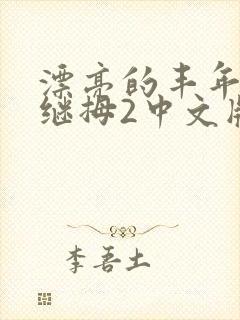 漂亮的丰年
继拇2中文版
李吾土